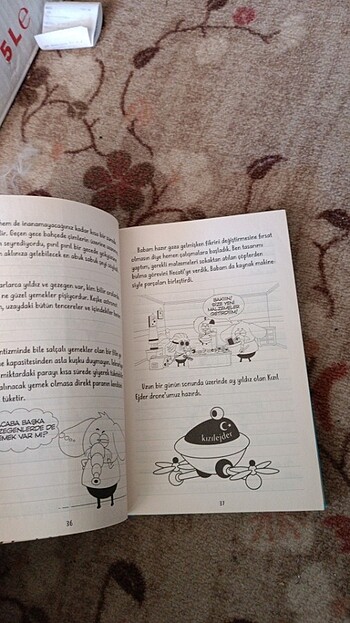 5L e
hem de inanamayacağınız kadar kısa bir sürede
Geçen gece bahçede çimlerin üzerine uzanmış
seyrediyordu, pırıl pırıl bir gecede gökyüzünü
aklınıza gelebilecek en abuk sabuk şeyi söyledi
arlarca yıldız ve gezegen var, kim bilir oralarda
ne güzel yemekler pişiyordur. Keşke astronot
uzaydaki bütün tencereler ve içindekiler benim
entizminde bile salçalı yemekler olan bir filin ye
me kapasitesinden asla kuşku duymayın.
miktardaki parayı kısa sürede yiyerek tüketebilir
alınacak yemek olmasa direkt paranın kendisini
tüketir.
ACABA BAŞKA
GEZEGENLERDE DE
YEMEK VAR MI?
36
Babam hazır yaşa gelmişken fikrini değiştirmesine fırsat
olmasın diye hemen çalışmalara başladık. Ben tasarımı
yaptım, gerekli malzemeleri sokaktan atılan çöplerden
bulma görevini Necati'ye verdik. Babam da kaynak makine-
siyle parçaları birleştirdi.
BAKIN!
SİZE YENİ
MALZEMELER
GETİRDİM!
Uzun bir günün sonunda üzerinde ay yıldız olan Kızıl
Ejder drone'umuz hazırdı.
kızılejder
37